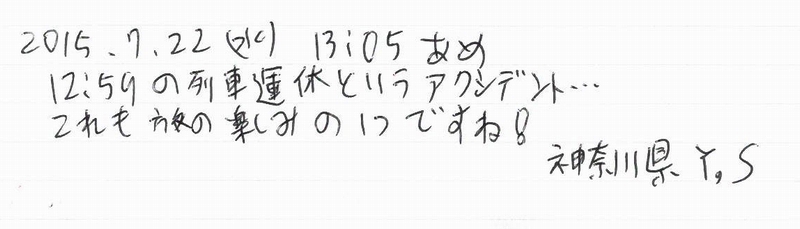 2015.7.22(水) 13:05 あめ
12:59の列車運休というアクシデント…
これも旅の楽しみの1つですね!
神奈川県 Y.S